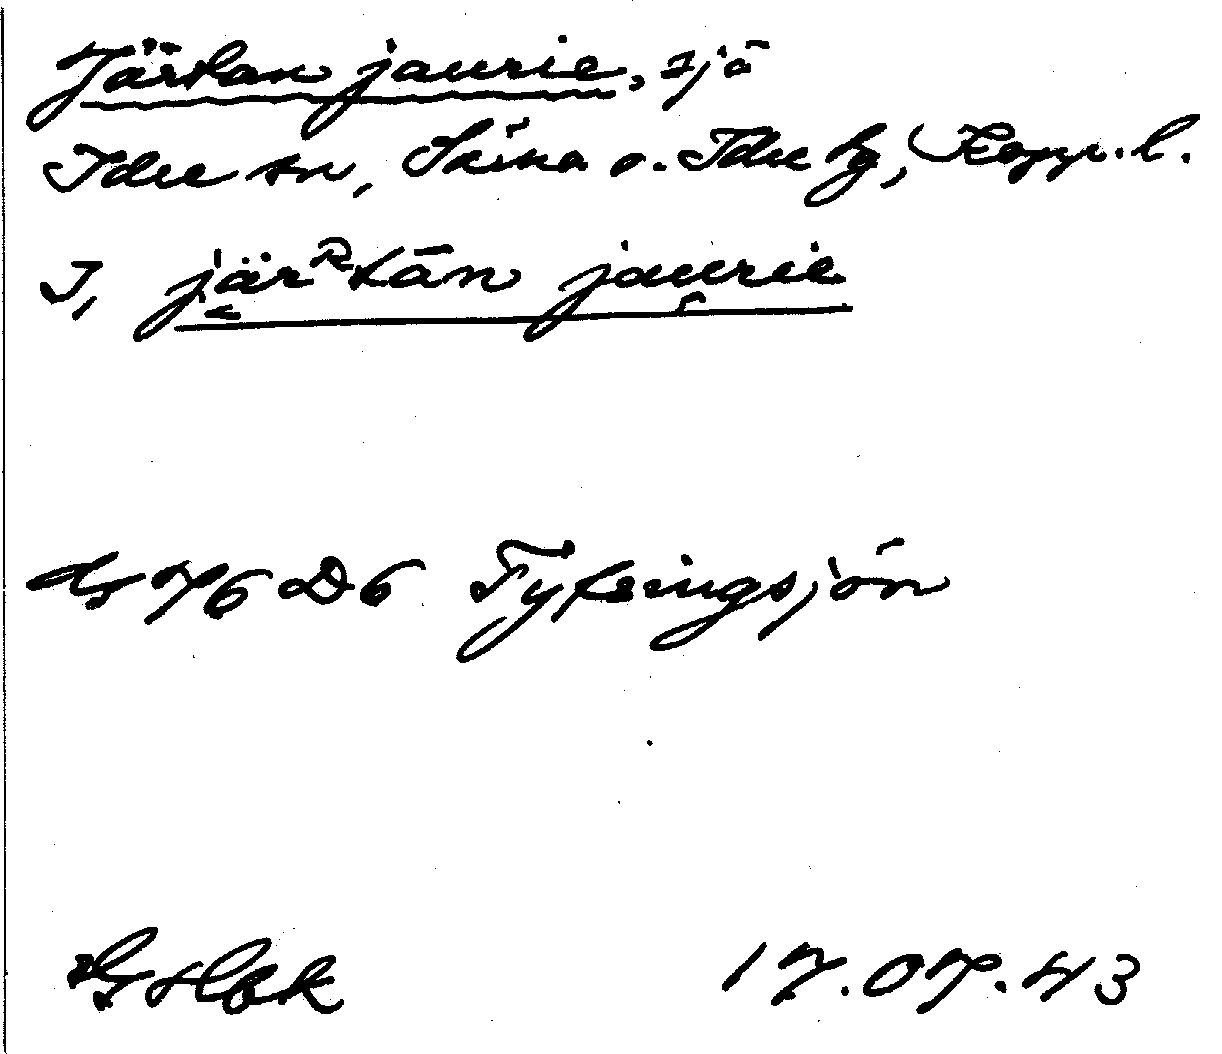 Järtan jaurie, sjö
Idre sn, Särna o. Idre tg, Kopp. l.
I, järᴿtān jaurie
GS 76 D6 Fyringsjön
17.07.43